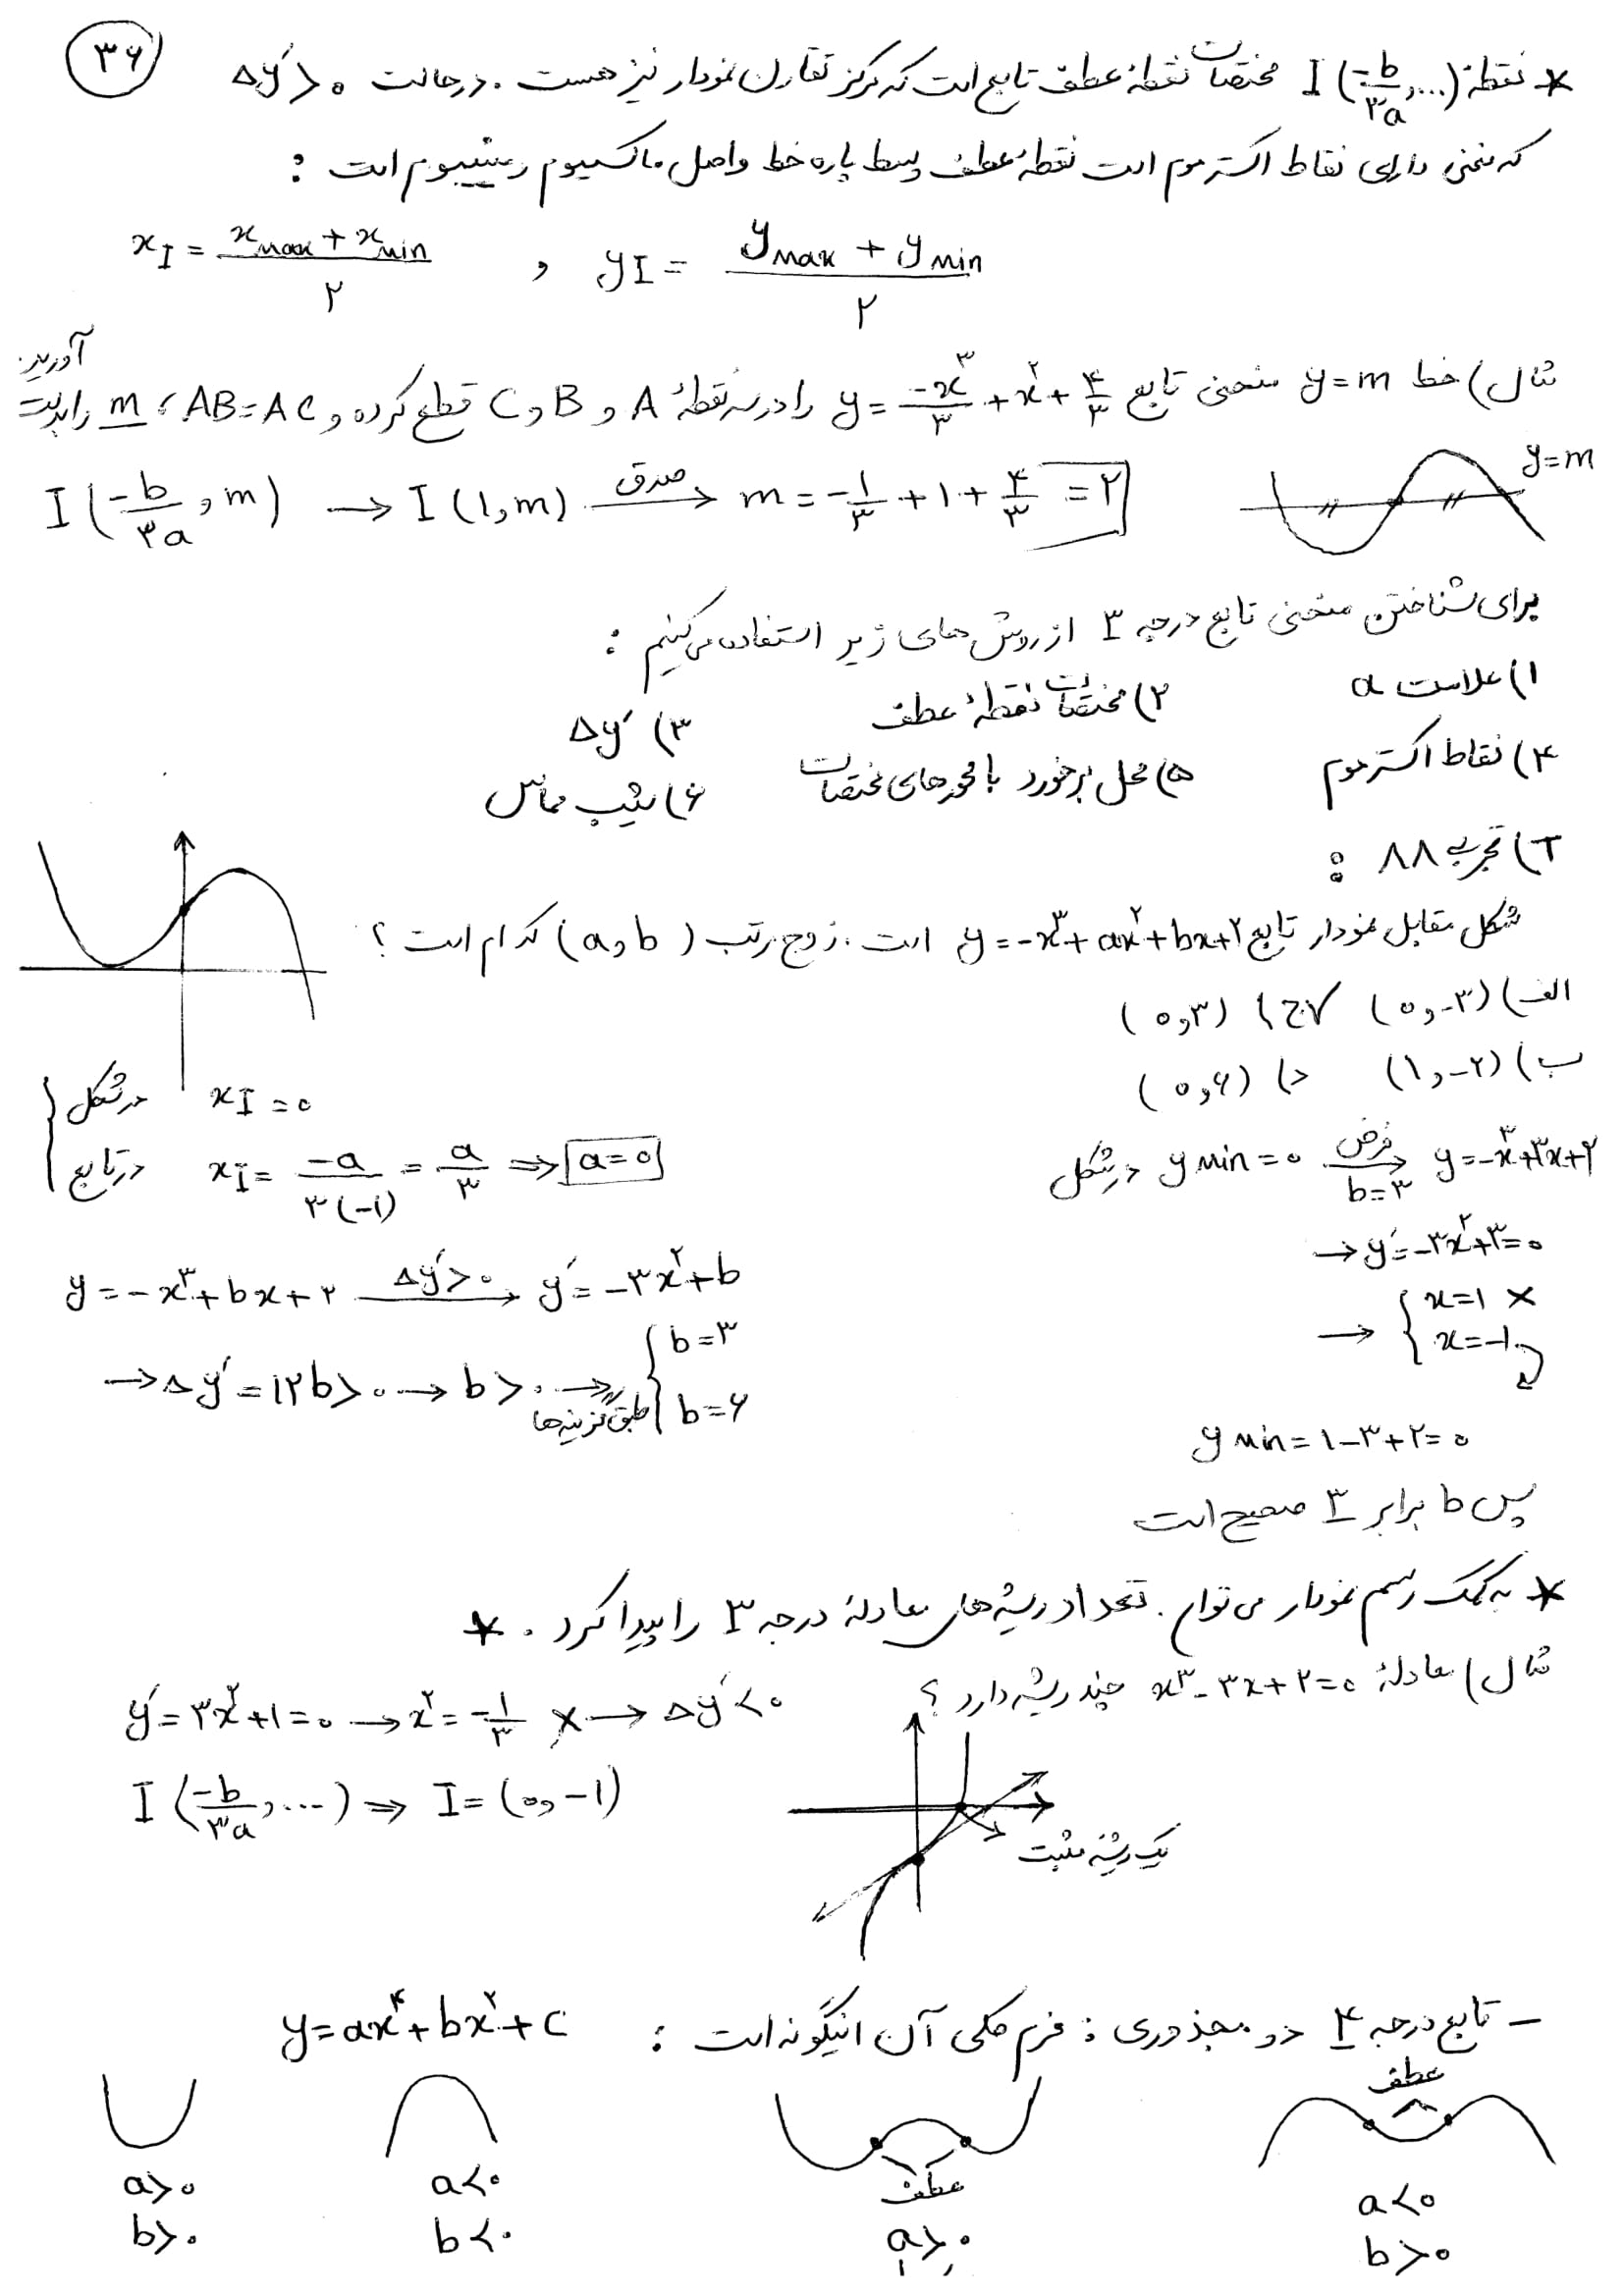 ۳۶
* نقطهٔ I(-b/۳a, ...) مختصات نقطهٔ عطف تابع است که مرکز تقارن نمودار نیز هست. در حالت Δy′>۰
که منحنی دارای نقاط اکسترموم است نقطهٔ عطف وسط پاره خط واصل ماکسیموم و مینیموم است :
x_I = (x_max + x_min)/۲ , y_I = (y_max + y_min)/۲
مثال) خط y=m منحنی تابع y = -x³/۳ + x² + ۴/۳ را در سه نقطهٔ A و B و C قطع کرده و AB=AC ، m را بدست آورید.
I(-b/۳a , m) → I(۱,m) —صدق→ m = -۱/۳ + ۱ + ۴/۳ = ۲
y=m
برای شناختن منحنی تابع درجه ۳ از روش های زیر استفاده می کنیم :
۱) علامت a ۲) مختصات نقطهٔ عطف ۳) Δy′
۴) نقاط اکسترموم ۵) محل برخورد با محورهای مختصات ۶) شیب مماس
T) تجربی ۸۸ :
شکل مقابل نمودار تابع y=-x³+ax²+bx+۲ است. زوج مرتب (a,b) کدام است ؟
الف) (۰,-۳) ج) ✓ (۰,۳)
ب) (۱,-۲) د) (۰,۶)
در شکل x_I = ۰
در تابع x_I = -a/۳(-۱) = a/۳ ⇒ a=۰
y=-x³+bx+۲ —Δy′>۰→ y′=-۳x²+b
→ Δy′=۱۲b>۰ → b>۰ → طبق گزینه ها { b=۳ b=۶
در شکل y min=۰ —فرض b=۳→ y=-x³+۳x+۲
→ y′=-۳x²+۳=۰
→ { x=۱ × x=-۱
y min=۱-۳+۲=۰
پس b برابر ۳ صحیح است
* به کمک رسم نمودار می توان. تعداد ریشه های معادلهٔ درجه ۳ را پیدا کرد. *
مثال) معادلهٔ x³-۳x+۲=۰ چند ریشه دارد ؟
y′=۳x²+۱=۰ → x²=-۱/۳ × → Δy′<۰
I(-b/۳a, ...) ⇒ I=(۰,-۱)
یک ریشهٔ مثبت
- تابع درجه ۴ دو مجذوری : فرم کلی آن اینگونه است : y=ax⁴+bx²+c
عطف
عطف
a>۰ a<۰ a>۰ a<۰
b>۰ b<۰ b>۰